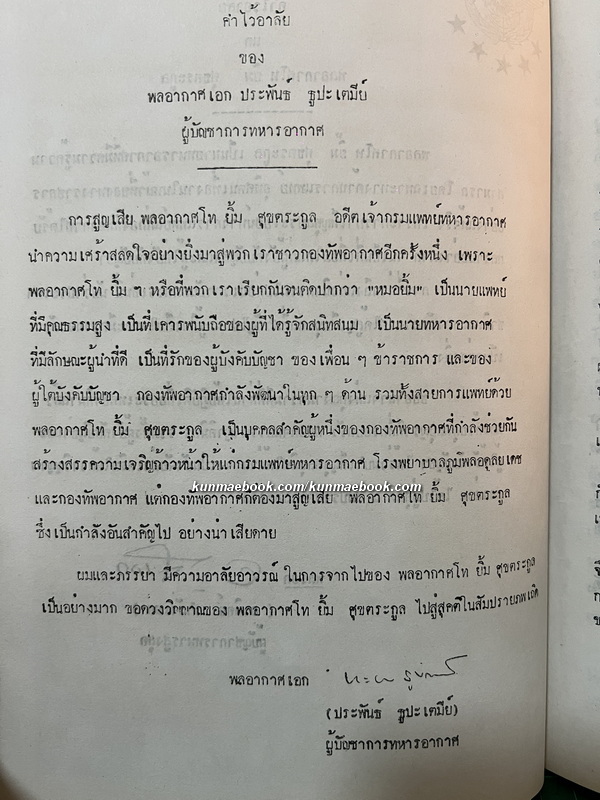 คำไว้อาลัย
ของ
พลอากาศเอก ประพันธ์ ธูปะเตมีย์
ผู้บัญชาการทหารอากาศ
การสูญเสีย พลอากาศโท ยิ้ม สุขตระกูล อดีตเจ้ากรมแพทย์ทหารอากาศ
นำความเศร้าสลดใจอย่างยิ่งมาสู่พวกเราชาวกองทัพอากาศอีกครั้งหนึ่ง เพราะ
พลอากาศโท ยิ้ม ฯ หรือที่พวกเราเรียกกันจนติดปากว่า "หมอยิ้ม" เป็นนายแพทย์
ที่มีคุณธรรมสูง เป็นที่เคารพนับถือของผู้ที่ได้รู้จักสนิทสนม เป็นนายทหารอากาศ
ที่มีลักษณะผู้นำที่ดี เป็นที่รักของผู้บังคับบัญชา ของเพื่อน ๆ ข้าราชการ และของ
ผู้ใต้บังคับบัญชา กองทัพอากาศกำลังพัฒนาในทุก ๆ ด้าน รวมทั้งสายการแพทย์ด้วย
พลอากาศโท ยิ้ม สุขตระกูล เป็นบุคคลสำคัญผู้หนึ่งของกองทัพอากาศที่กำลังช่วยกัน
สร้างสรรความเจริญก้าวหน้าให้แก่กรมแพทย์ทหารอากาศ โรงพยาบาลภูมิพลอดุลยเดช
kunmaebook.com/kunmaebook.com
และกองทัพอากาศ แต่กองทัพอากาศก็ต้องมาสูญเสีย พลอากาศโท ยิ้ม สุขตระกูล
ซึ่งเป็นกำลังอันสำคัญไป อย่างน่าเสียดาย
ผมและภรรยา มีความอาลัยอาวรณ์ ในการจากไปของ พลอากาศโท ยิ้ม สุขตระกูล
เป็นอย่างมาก ขอดวงวิญญาณของ พลอากาศโท ยิ้ม สุขตระกูล ไปสู่สุคติในสัมปรายภพเถิด
พลอากาศเอก
(ประพันธ์ ธูปะเตมีย์)
ผู้บัญชาการทหารอากาศ